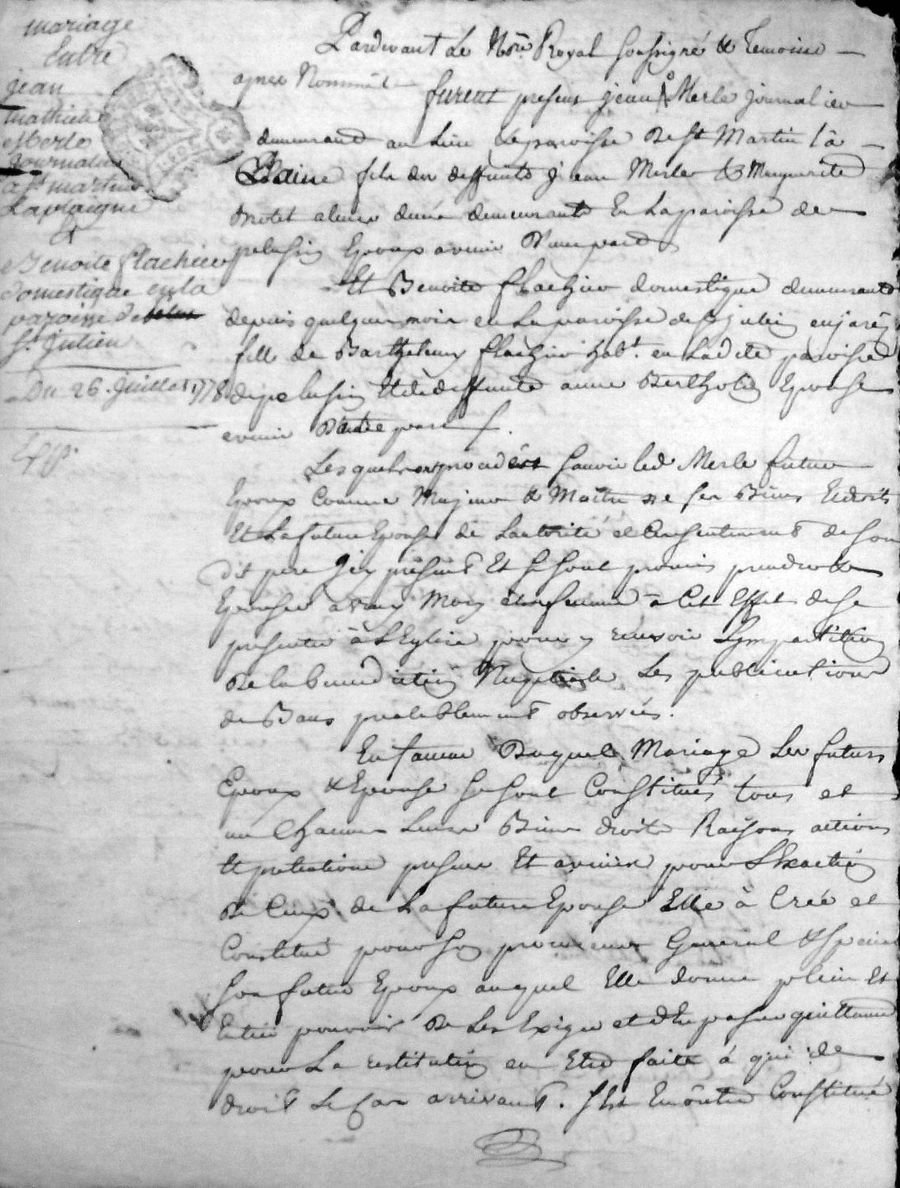 mariage
Entre
jean
mathieu
Merle
journalier
a St martin
Laplaigne
&
Benoite flachier
domestique en la
paroisse de
St Julien
Du 26 Juillet 1778
Pardevant Le Nore Royal Soussigné & Temoins
apres Nommés
furent present jean Merle journalier
demeurant au Lieu & paroisse De St Martin La
Plaine fils de deffunts jean Merle & Marguerite
demeurant En La paroisse de
pelussin Epoux avenir D'une part
Et Benoite flachier domestique demeurante
depuis quelque mois en La paroisse de St julien en jarêt
fille de Barthelemy flachier habt. en Ladite paroisse
de pelussin Et de deffunte anne Bertholet Epouse
avenir D'autre part
Lesquels procedant Scavoir led Merle futur
Epoux Comme Majeur & Maitre de ses Biens & droits
Et La future Epouse de L'autorité et Consentement de son
dit pere ici present Et se sont promis prendre &
Epouser a Cet Effet de se
presenter à L'Eglise pour y recevoir L'impartition
De la benediction Nuptiale Les publications
de Bans prealablement observées.
En faveur Duquel Mariage Les futurs
Epoux & Epouse se sont Constitués tous et
un Chacun Leurs Biens droits Raisons actions
& pretentions presens Et avenir pour L'Exaction
De Ceux de La future Epouse Elle à Créé et
Constitué pour son procureur General & special
son futur Epoux auquel Elle donne plein Et
Entier pouvoir De Les Exiger et d'En passer quittance
pour La restitution en Etre faite à qui de
droit Le Cas arrivant. S'est En outre Constitué